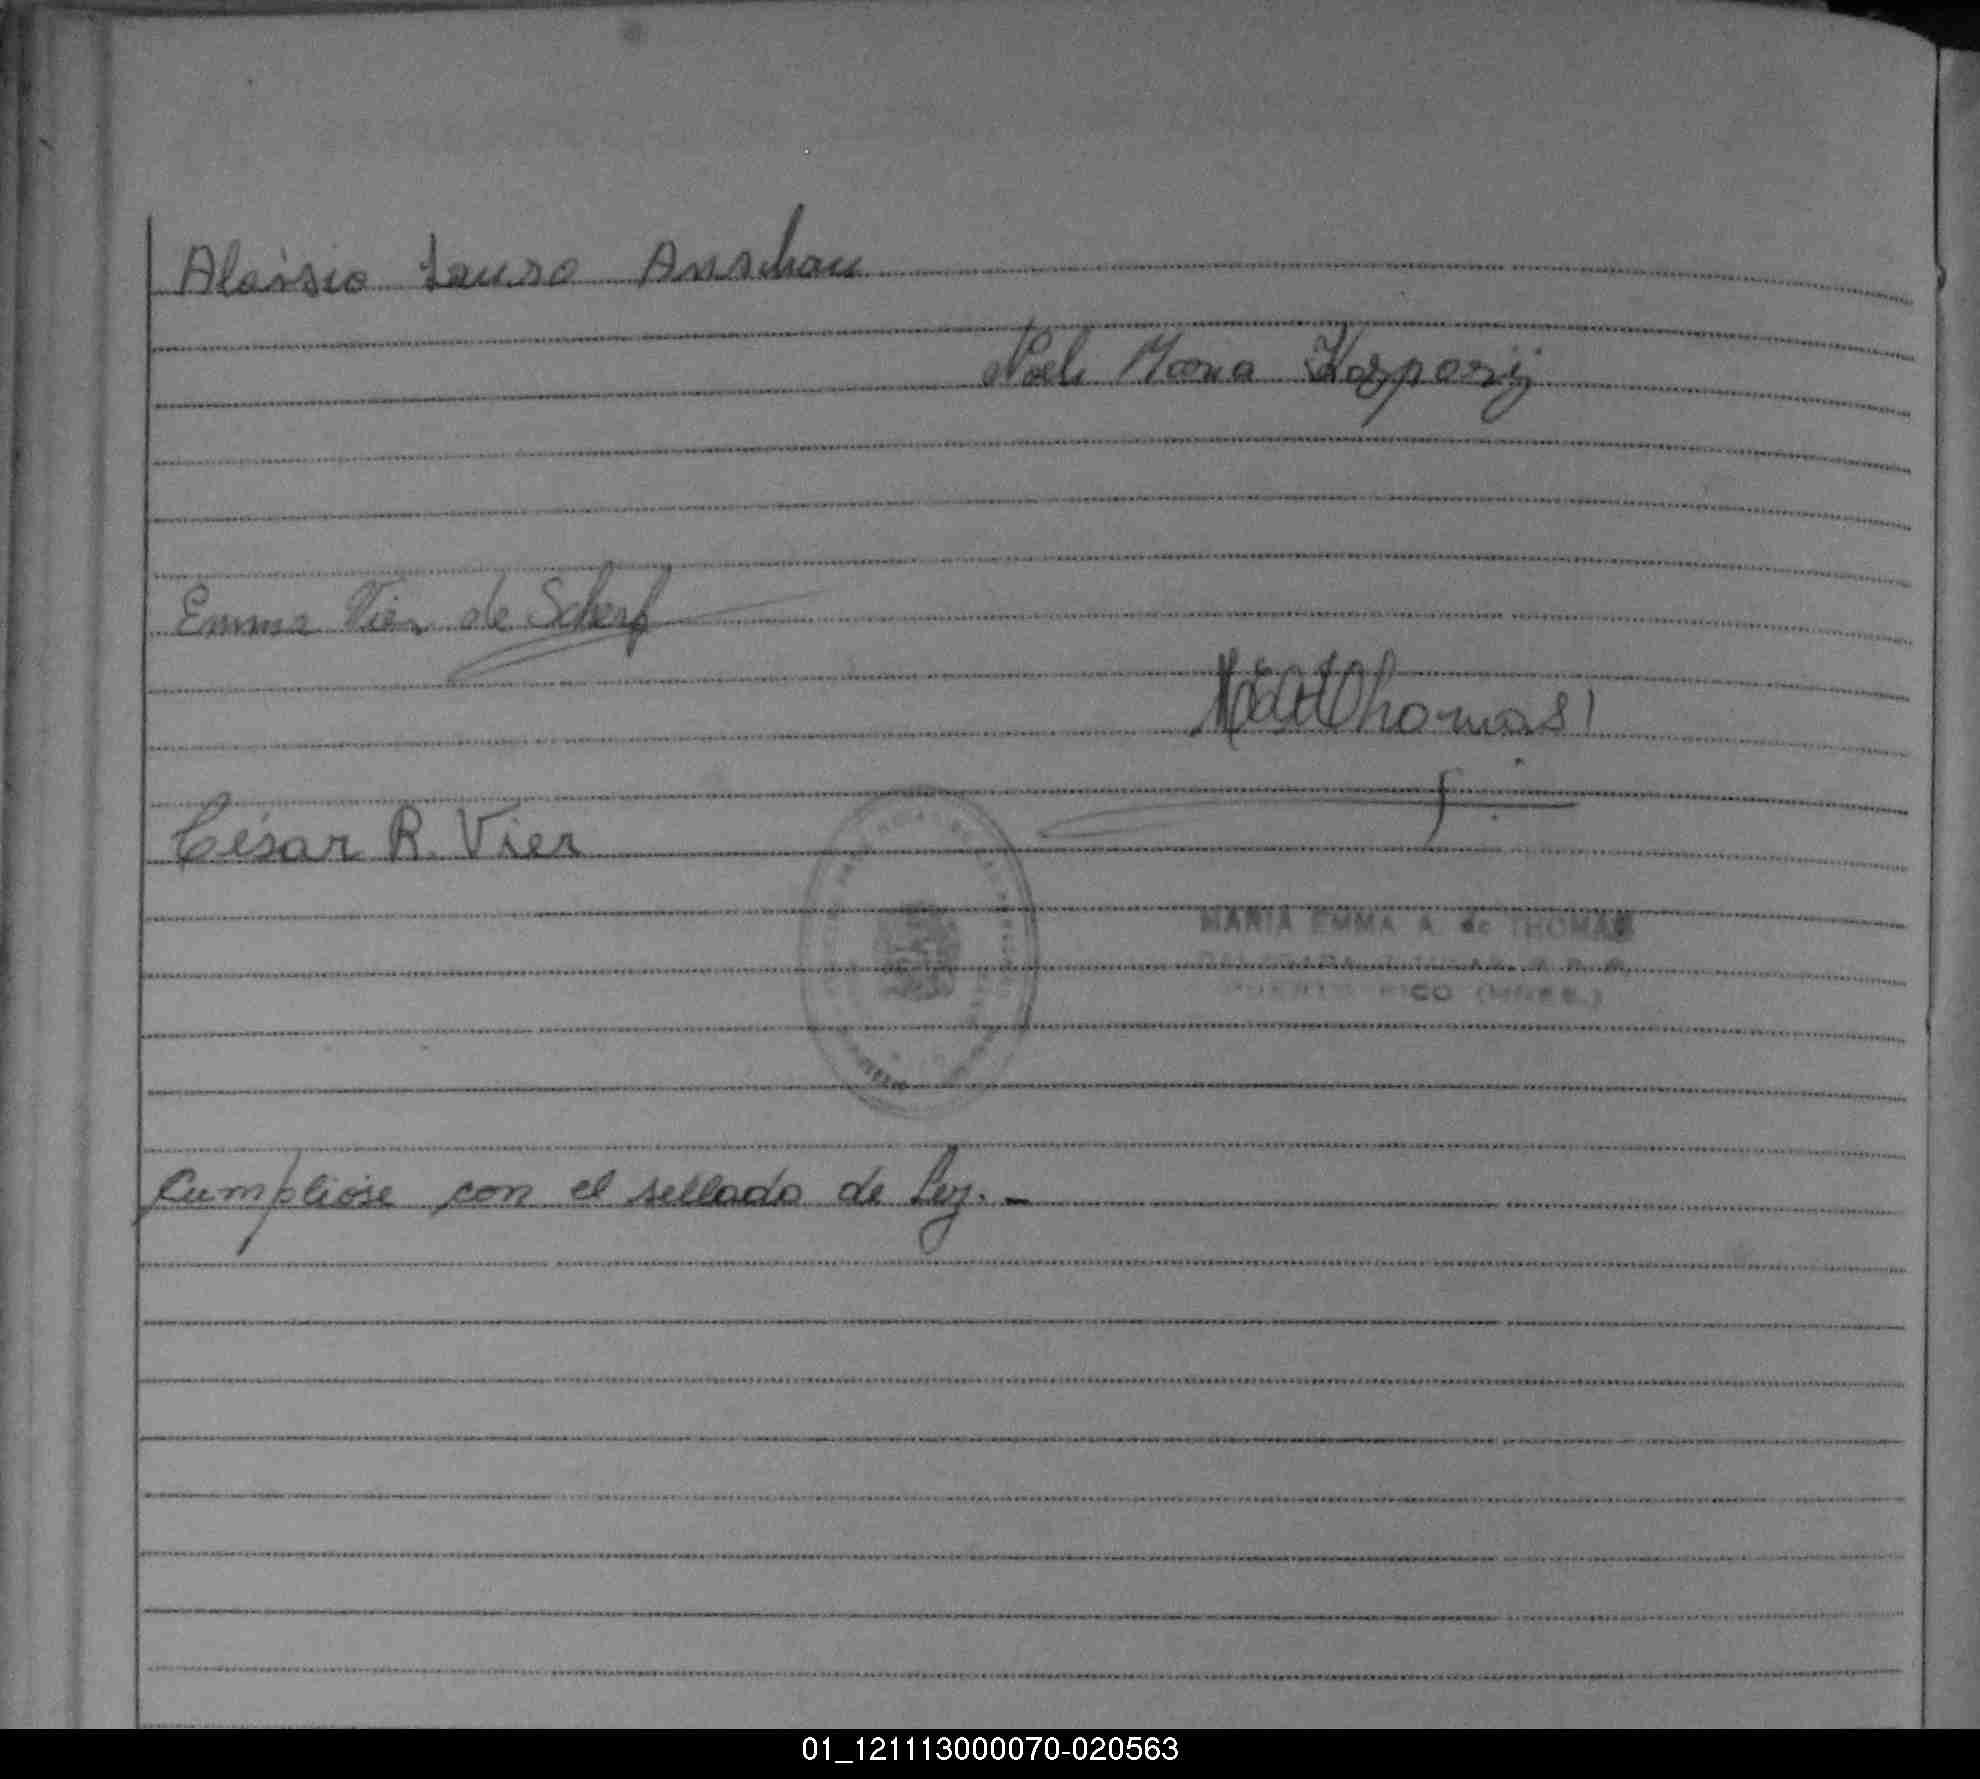 Aloisio Lauro Anschau
Noeli Maria Kasparij
Emma Vier de Scherf
MEAdeThomas
César R. Vier
MARIA EMMA A. de THOMAS
PUERTO RICO (MNES.)
Cumplióse con el sellado de Ley. -
01_121113000070-020563